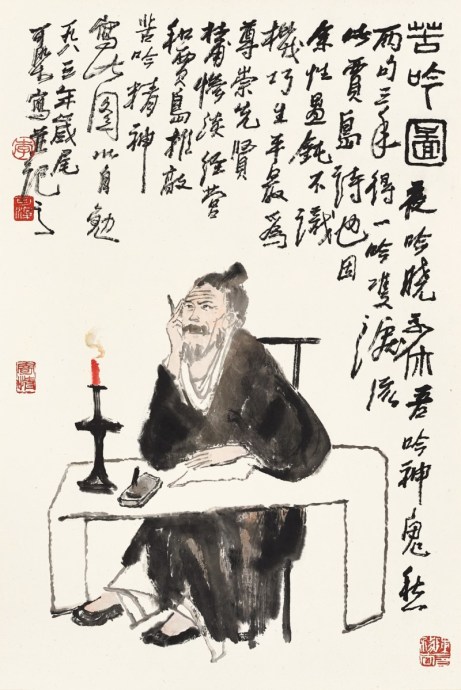 苦吟圖
夜吟曉不休吾吟神鬼愁
兩句三年得一吟雙淚流
此賈島詩也因
余性愚鈍不識
機巧生平最為
尊崇先賢
杜甫慘淡經營
和賈島推敲
苦吟精神
寫此圖以自勉
一九八三年歲尾
可染寫並記之
李